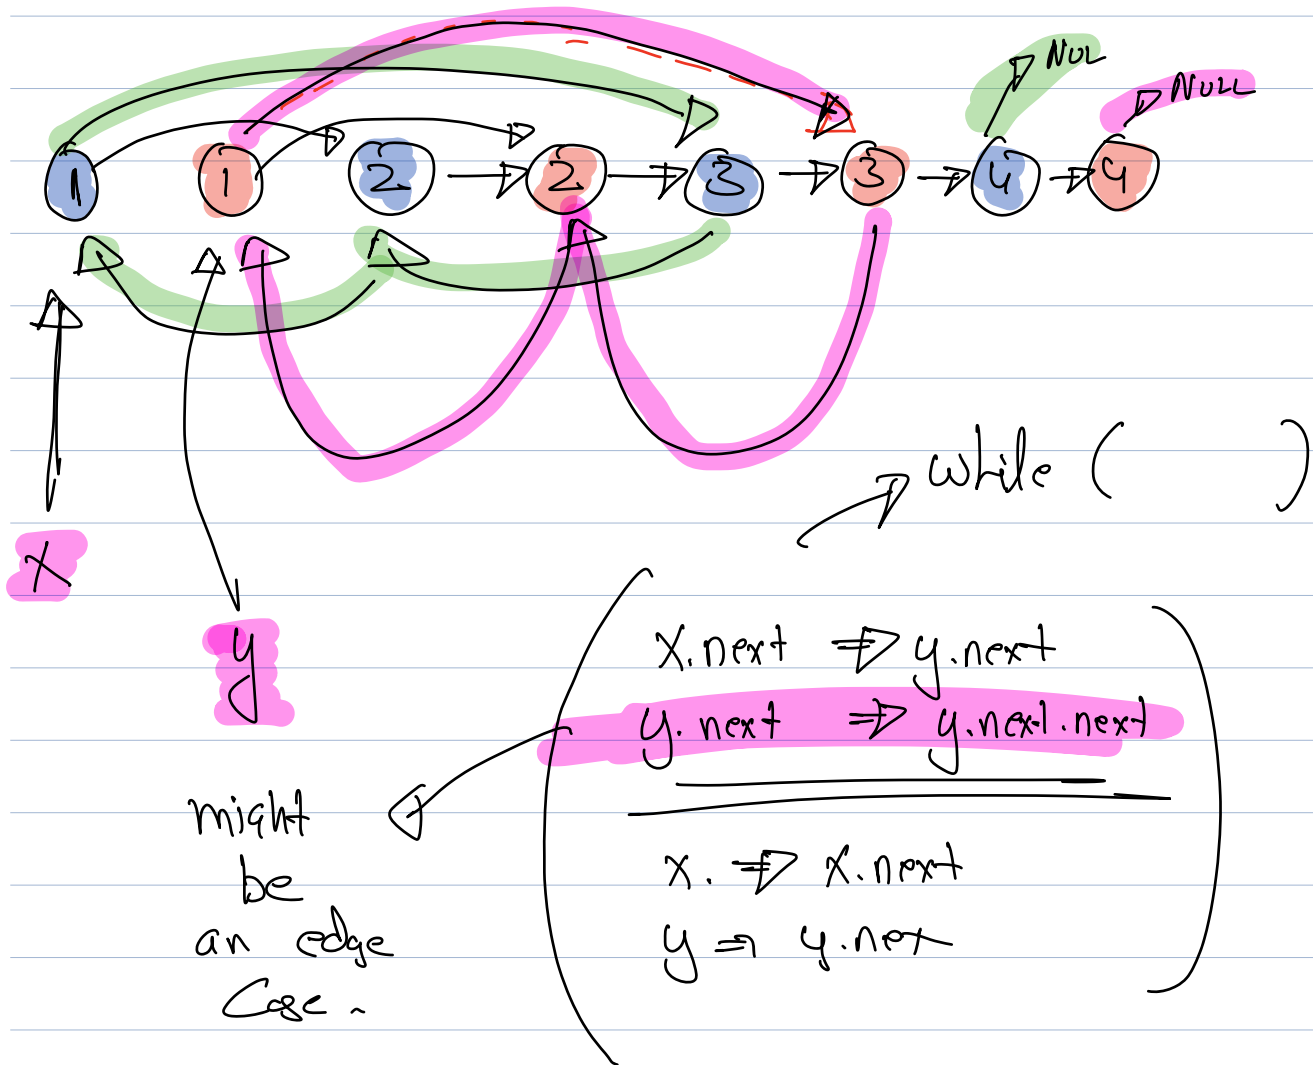 NUL
NULL
1 1 2 2 3 3 4 4
while ( )
x
y
x.next ⇒ y.next
y.next ⇒ y.next.next
x. ⇒ x.next
y ⇒ y.nex
might
be
an edge
Case.